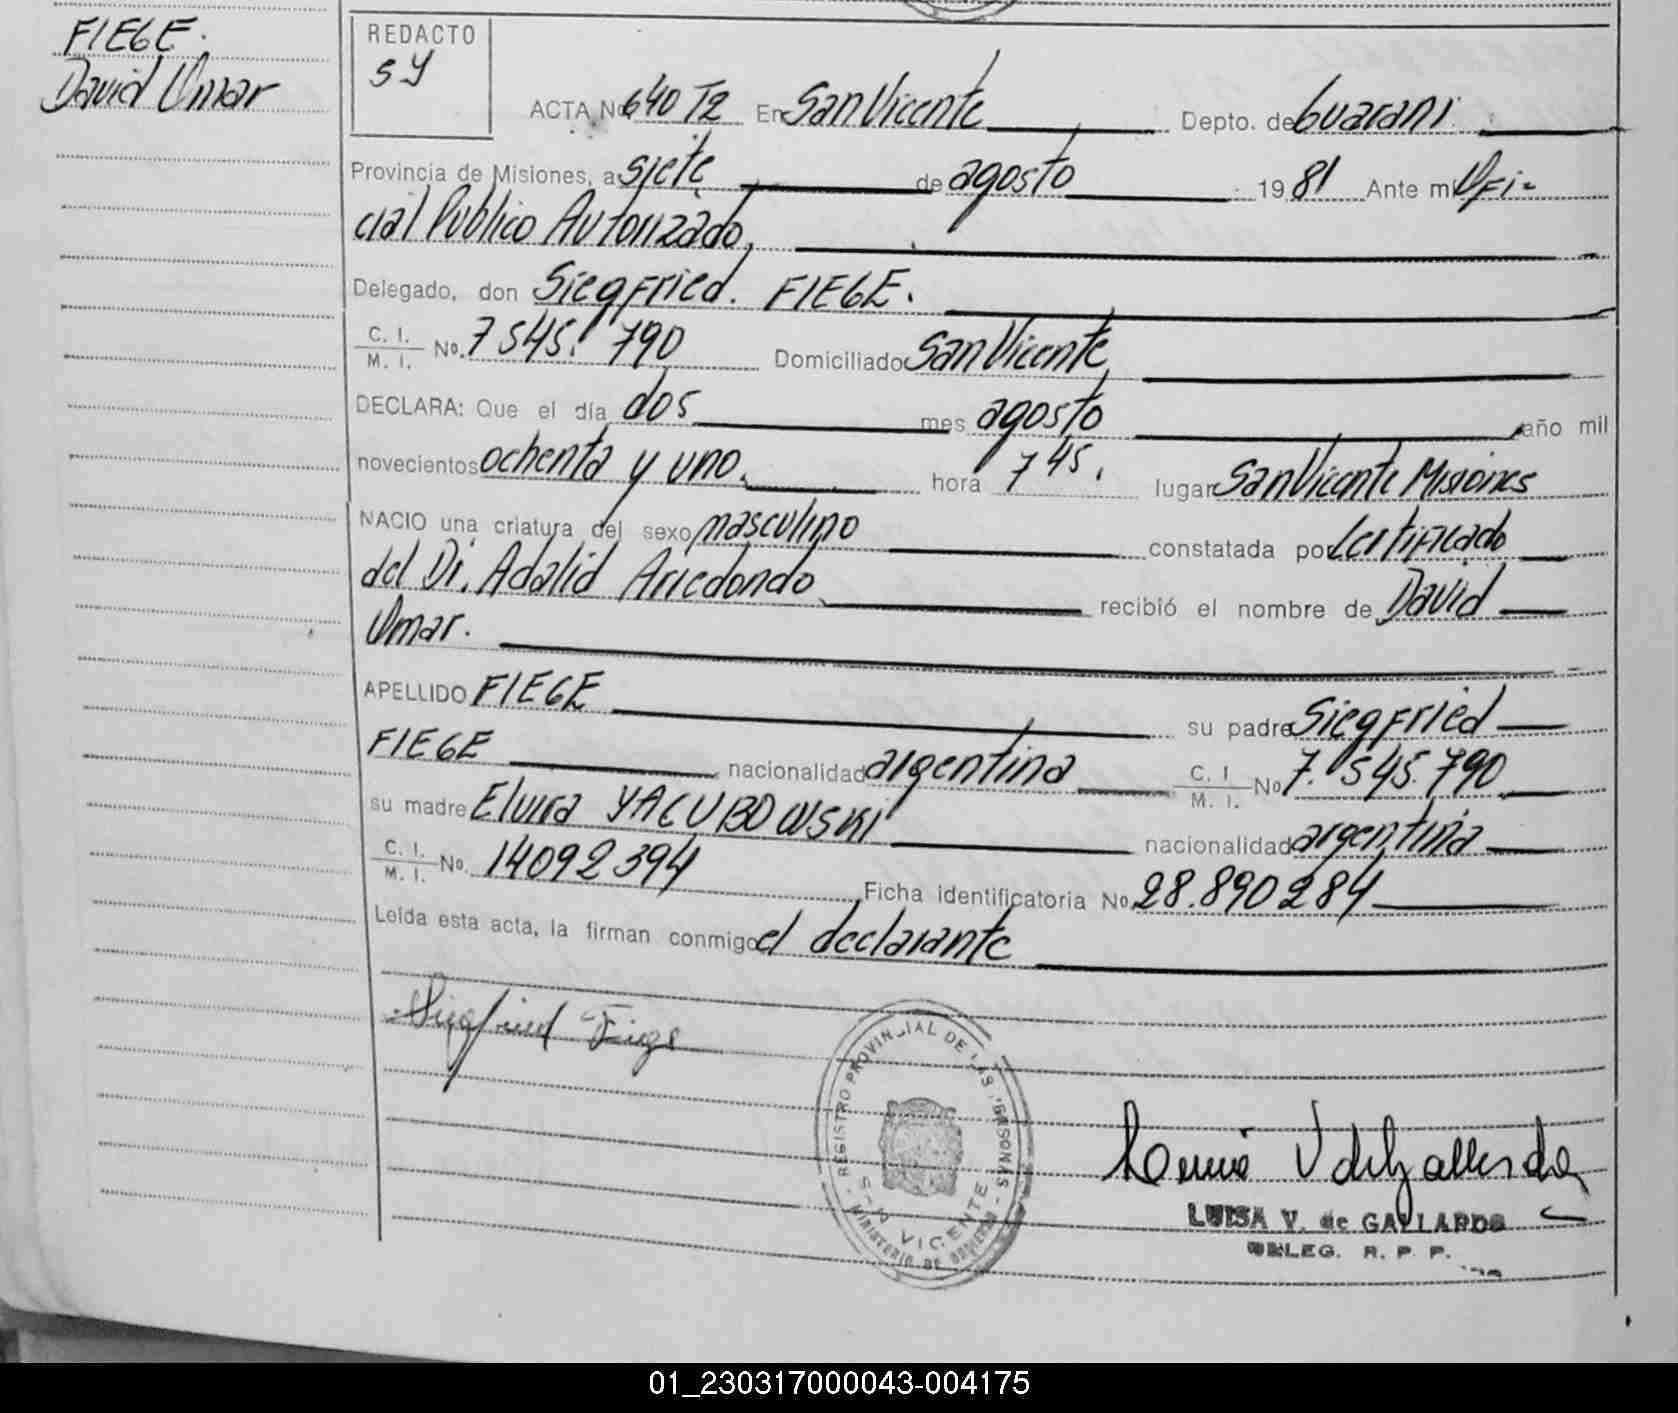 FIEGE.
David Omar
REDACTO
SY
ACTA No 640 T2 En San Vicente Depto. de Guarani
Provincia de Misiones, a siete de agosto 1981 Ante mi Ofi-
cial Publico Autorizado,
Delegado, don Siegfried. FIEGE.
C. I. / M. I. No. 7.545.790 Domiciliado San Vicente
DECLARA: Que el día dos mes agosto año mil
novecientos ochenta y uno. hora 7 45. lugar San Vicente Misiones
NACIO una criatura del sexo masculino constatada por Certificado
del Dr. Adalid Arredondo recibió el nombre de David
Omar.
APELLIDO FIEGE su padre Siegfried
FIEGE nacionalidad argentina C. I. / M. I. No 7.545.790
su madre Elvira YACUBOWSKI nacionalidad argentina
C. I. / M. I. No. 14092394 Ficha identificatoria No. 28.890284
Leída esta acta, la firman conmigo el declarante
Siegfried Fiege
REGISTRO PROVINCIAL DE LAS PERSONAS
SAN VICENTE
MINISTERIO DE GOBIERNO
LUISA V. de GALLARDO
DELEG. R. P. P.
01_230317000043-004175